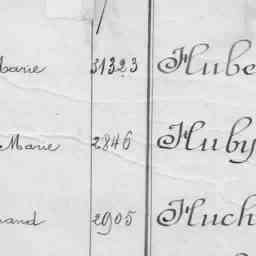 Marie 31323 Hube
Marie 2846 Huby
and 2905 Huch